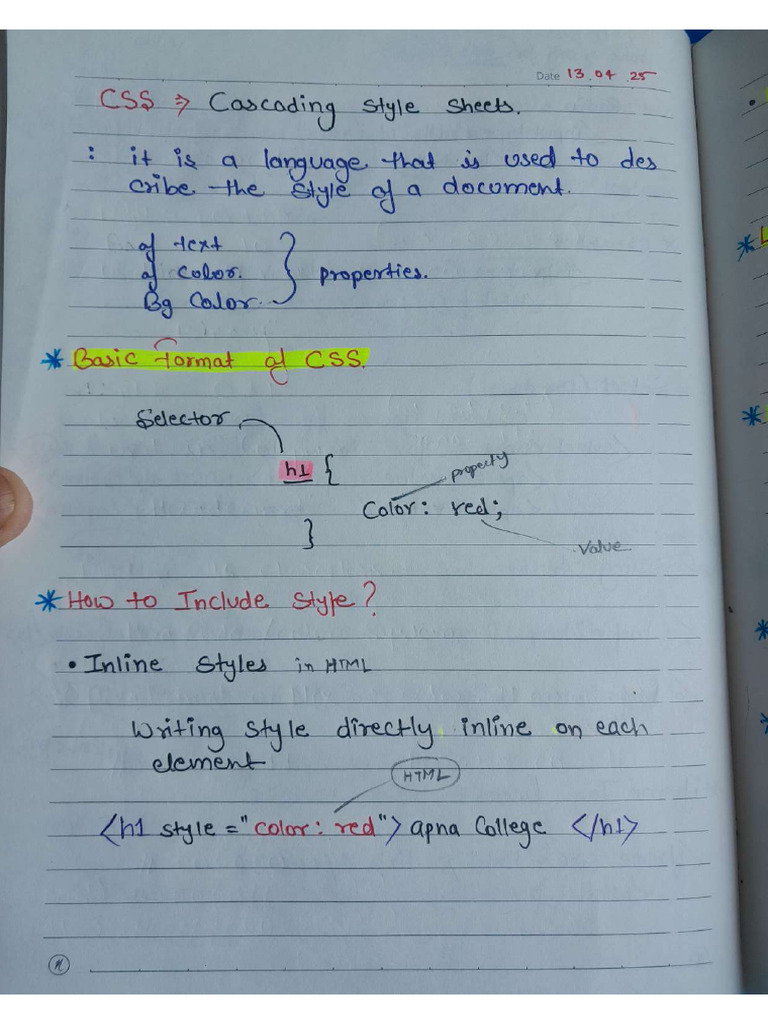 Date 13.04.25
CSS ⇒ Cascading Style Sheets.
: it is a language that is used to des
cribe the style of a document.
of text
of color. } properties.
Bg Color.
* Basic format of CSS.
Selector
h1 {
property
Color: red;
}
value
* How to Include Style?
• Inline Styles in HTML
Writing style directly inline on each
element
HTML
<h1 style="color: red"> apna College </h1>